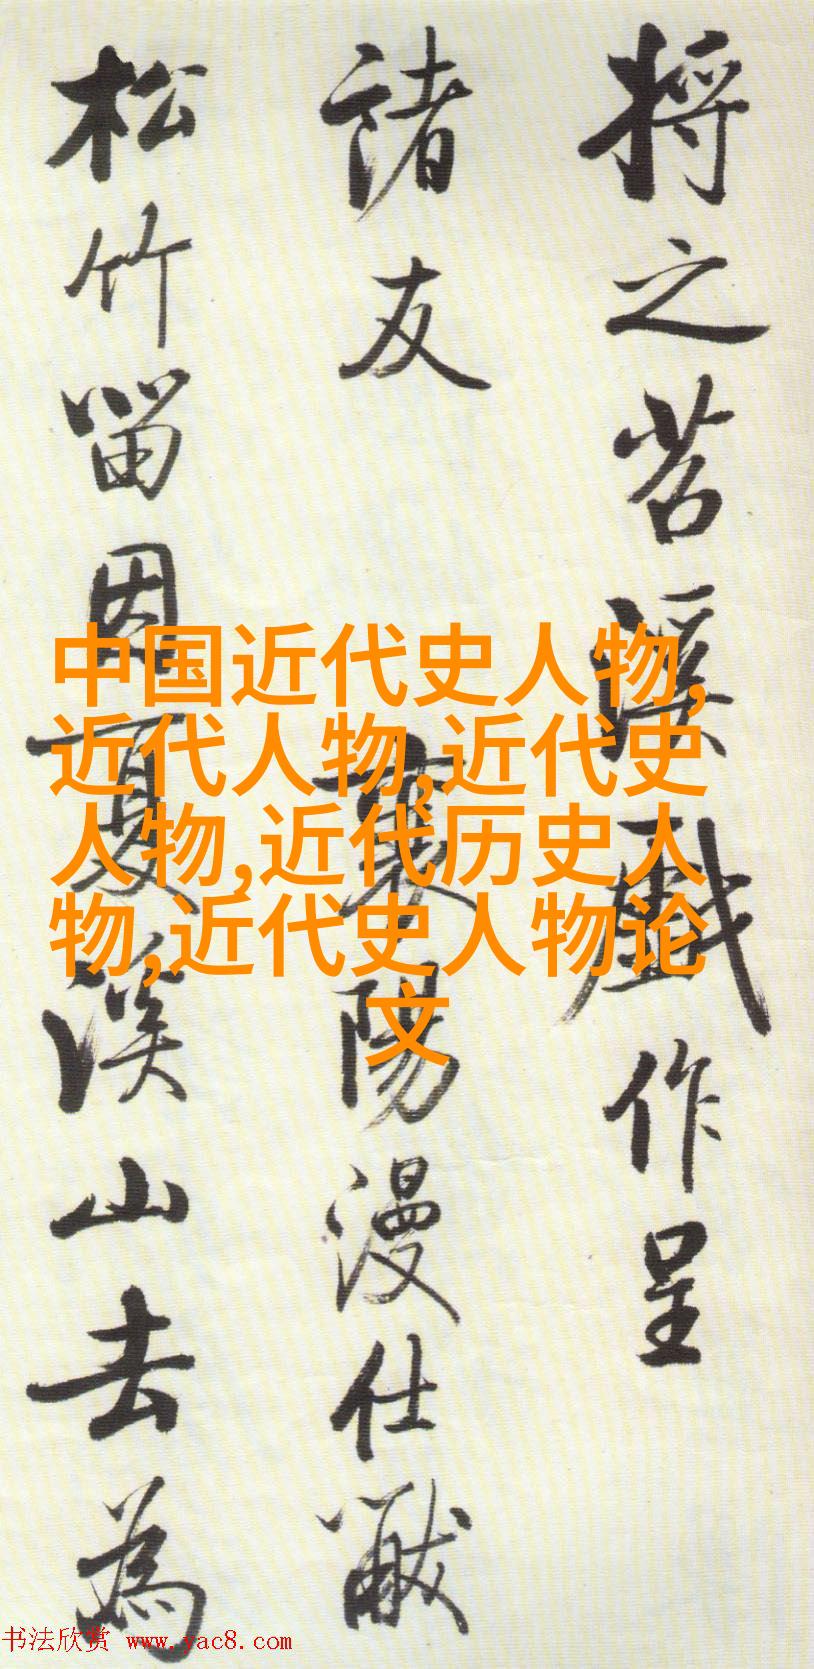 将之苕溪戲作呈
諸友
襄陽漫仕黻
松竹留因夏溪山去為
中国近代史人物,
近代人物,近代史
人物,近代历史人
物,近代史人物论
文
书法欣赏 www.yac8.com